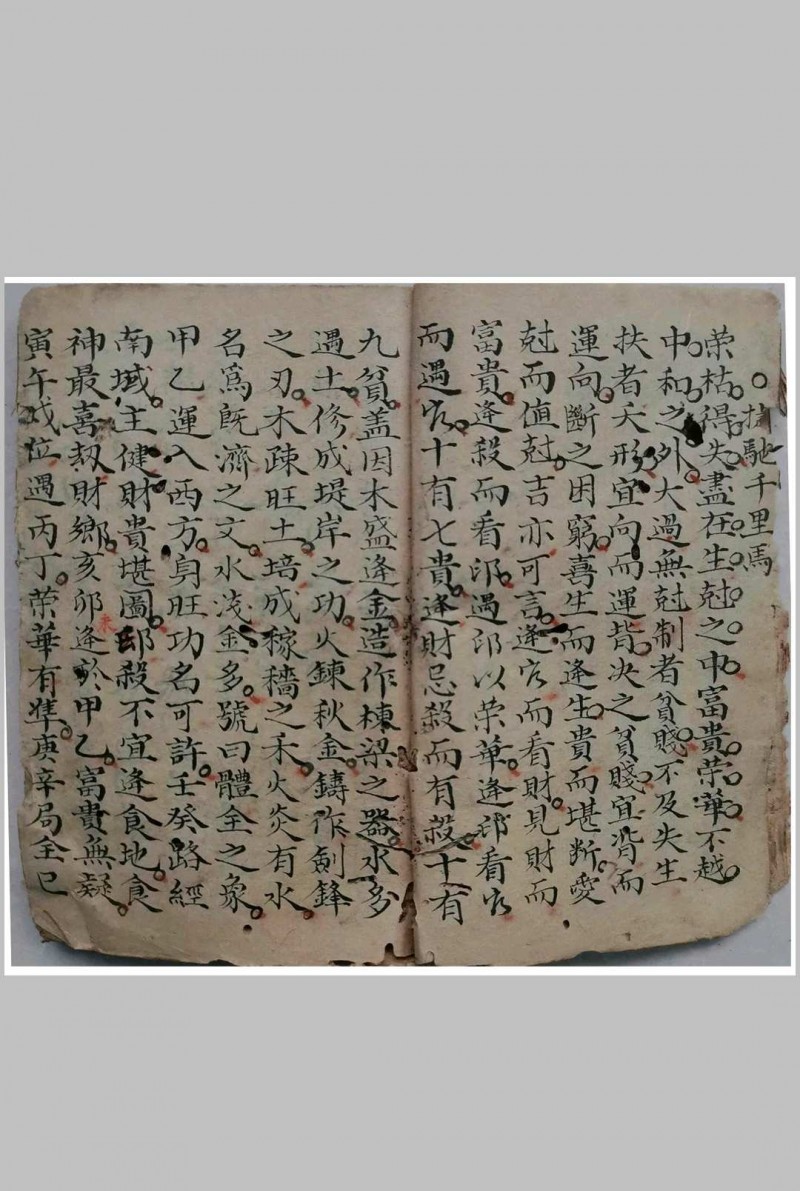 馳千里馬
荣枯得失盡在生尅之中富貴荣華不越
中和之外大過無尅制者貧賤不及失生
扶者夭形宜向而運背决之貧賤宜背而
運向斷之困窮喜生而逢生貴而堪断愛
尅而值尅吉亦可言逢官而看財見財而
富貴逢殺而看印遇印以荣華逢印看官
而遇官十有七貴逢財忌殺而有殺十有
九貧盖因木盛逢金造作棟梁之器水多
遇土修成堤岸之功火鍊秋金鑄作劍鋒
之刃木疎旺土培成稼穡之禾火炎有水
名爲既濟之文水浅金多號曰體全之象
甲乙運入西方身旺功名可許壬癸路經
南域主健財貴堪圖殺不宜逢食地食
神最喜刼財鄉亥卯未逢於甲乙富貴無疑
寅午戍位遇丙丁荣華有準庚辛局全巳